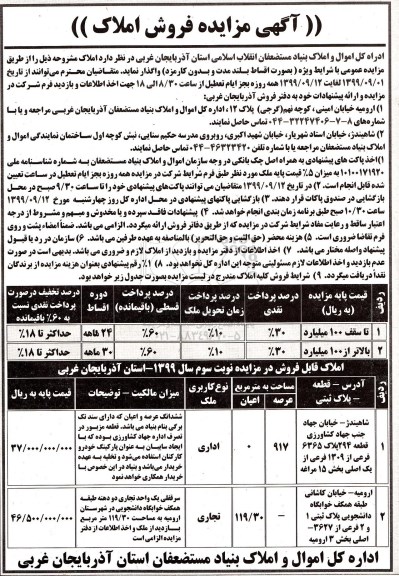 (( آگهی مزایده فروش املاک ))
اداره کل اموال و املاک بنیاد مستضعفان انقلاب اسلامی استان آذربایجان غربی در نظر دارد املاک مشروحه ذیل را از طریق
مزایده عمومی با شرایط ویژه ( بصورت اقساط بلند مدت و بدون کارمزد) واگذار نماید. متقاضیان محترم می‌توانند از تاریخ
۱۳۹۹/۰۹/۰۱ لغایت ۱۳۹۹/۰۹/۱۲ همه روزه بجز ایام تعطیل از ساعت ۸/۳۰ الی ۱۸ جهت اخذ اطلاعات و بازدید فرم شرکت در
مزایده و ارائه پیشنهادات خود به دفتر فروش آذربایجان غربی:
۱) ارومیه خیابان امینی، کوچه نهم(کرجی) پلاک ۱۲، اداره کل اموال و املاک بنیاد مستضعفان آذربایجان غربی مراجعه و یا با
شماره‌های ۸-۷-۳۲۲۴۷۴۰۶-۰۴۴ تماس حاصل نمایند.
۲) شاهیندژ، خیابان استاد شهریار، خیابان شهید اکبری، روبروی مدرسه حکیم سنایی، نبش کوچه اول ساختمان نمایندگی اموال و
املاک بنیاد مستضعفان مراجعه یا با شماره تلفن ۴۶۳۲۳۴۲۰-۰۴۴ تماس حاصل نمایند.
۱)اخذ پاکت های پیشنهادی به همراه اصل چک بانکی در وجه سازمان اموال و املاک بنیاد مستضعفان به شماره شناسنامه ملی
۱۰۱۰۰۱۷۱۹۲۰ به میزان ۵٪ قیمت پایه ملک مورد نظر طبق فرم شرایط شرکت در مزایده همه روزه بجز ایام تعطیل در ساعت تعیین
شده قابل انجام است. ۲) در تاریخ ۱۳۹۹/۰۹/۱۲ متقاضیان می توانند پاکت‌های پیشنهادی خود را تا ساعت ۹/۳۰ صبح در محل
بازگشایی در صندوق پاکات قرار دهند. ۳) بازگشایی پاکتهای پیشنهادی در محل اداره کل روز چهارشنبه مورخ ۱۳۹۹/۰۹/۱۲
ساعت ۱۰/۳۰ صبح طبق برنامه زمان بندی انجام خواهد شد. ۴) پیشنهادات فاقد سپرده و یا مخدوش و مبهم و مشروط از درجه
اعتبار ساقط و رعایت مفاد شرایط شرکت در مزایده که از طریق دفاتر فروش ارائه میگردد، الزامی می باشد. ضمناً امضاء پشت و روی
فرم تقاضا ضروری است. ۵) هزینه محضر (حق الثبت و حق التحریر) بالمناصفه به عهده طرفین می باشد. ۶) سازمان در رد یا قبول
پیشنهاد واصله مختار می باشد. ۷) اخذ اطلاعات از دفتر مزایده و بازدید از املاک لازم و ضروری می باشد. بدیهی است در صورت
عدم بازدید و اخذ اطلاعات لازم مسئولیتی متوجه این اداره کل نخواهد بود. ۸) ۱٪ رقم پیشنهادی بعنوان هزینه مزایده از برندگان
نقداً دریافت میگردد. ۹) شرایط فروش کلیه املاک مندرج در لیست مزایده بصورت جدول زیر خواهد بود.
ردیف | قیمت پایه مزایده به ریال | درصد پرداخت نقدی | درصد پرداخت زمان تحویل ملک | درصد پرداخت قسطی (باقیمانده) | دوره اقساط | درصد تخفیف در صورت پرداخت نقدی نسبت به ۶۰٪ باقیمانده
۱ | تا سقف ۱۰۰ میلیارد | ۳۰٪ | ۱۰٪ | ۶۰٪ | ۲۴ ماهه | حداکثر تا ۱۸٪
۲ | بالاتر از ۱۰۰ میلیارد | ۳۰٪ | ۱۰٪ | ۶۰٪ | ۳۰ ماهه | حداکثر تا ۱۸٪
املاک قابل فروش در مزایده نوبت سوم سال ۱۳۹۹-استان آذربایجان غربی
ردیف | آدرس - قطعه - پلاک ثبتی | مساحت به مترمربع | عرصه | اعیان | نوع کاربری ملک | میزان مالکیت - توضیحات | قیمت پایه به ریال
۱ | شاهیندژ - خیابان جهاد جنب جهاد کشاورزی قطعه ۲۹۳پلاک ۶۳۶۵ فرعی از ۱۳۰۹ فرعی از یک اصلی بخش ۱۵ مراغه | ۹۱۷ | ۰ | اداری | ششدانگ عرصه و اعیان که دارای سند تک برگی بنام بنیاد می باشد. قطعه مزبور در تصرف اداره جهاد کشاورزی بوده که با ایجاد سایبان به عنوان پارکینگ خودرو کارکنان استفاده می‌شود و تخلیه به عهده خریدار می‌باشد و بنیاد در این خصوص با خریدار همکاری خواهد نمود | ۳۷/۰۰۰/۰۰۰/۰۰۰
۲ | ارومیه - خیابان کاشانی طبقه همکف خوابگاه دانشجویی پلاک ثبتی ۱ و ۲ فرعی از ۳۶۲۷- اصلی بخش ۳ ارومیه | - | ۱۱۹/۳۰ | تجاری | سرقفلی یک واحد تجاری دو دهنه طبقه همکف خوابگاه دانشجویی در شهرستان ارومیه به مساحت ۱۱۹/۳۰ متر مربع بازدید از ملک و اخذ اطلاعات از دفتر مزایده الزامی است | ۴۶/۵۰۰/۰۰۰/۰۰۰
اداره کل اموال و املاک بنیاد مستضعفان استان آذربایجان غربی